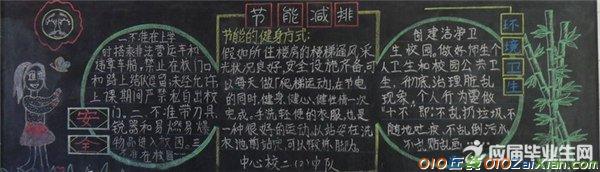 一不准在上学
时搭乘非法营运车和
违章车船,禁止在校门口
和路上
上课期间严禁私自出校
门。二不准带刀具
锐器和易燃易爆
物品进入校园。三
不准在校园
安
全
节能减排
节能的健身方式:
假如所住楼房的楼梯通风采
光状况良好,安全设施齐备,可
以每天做“爬楼”运动,在节电
的同时,健身、健心、健性情一次
完成。手洗轻便的衣服,也是
一种很好的运动,以站姿在洗
衣池
中心校二(2)中队
创建洁净卫
生校园,做好师生个
人卫生和校园公共卫
生,彻底治理脏乱
现象,个人行为要做
“十不”即:不乱扔垃圾,不
随地吐痰,不乱倒污水,
不乱贴乱画
环
境
卫
生
应届毕业生网
010在线>010zaixian.com